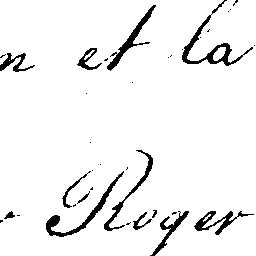 et la
Roger